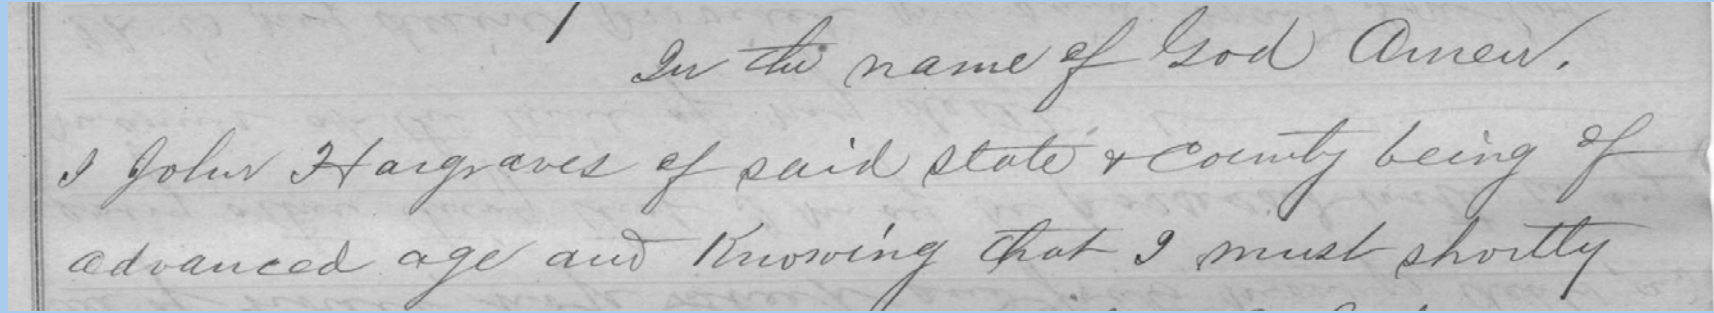 In the name of God Amen.
I John Hargraves of said state & County being of
advanced age and Knowing that I must shortly